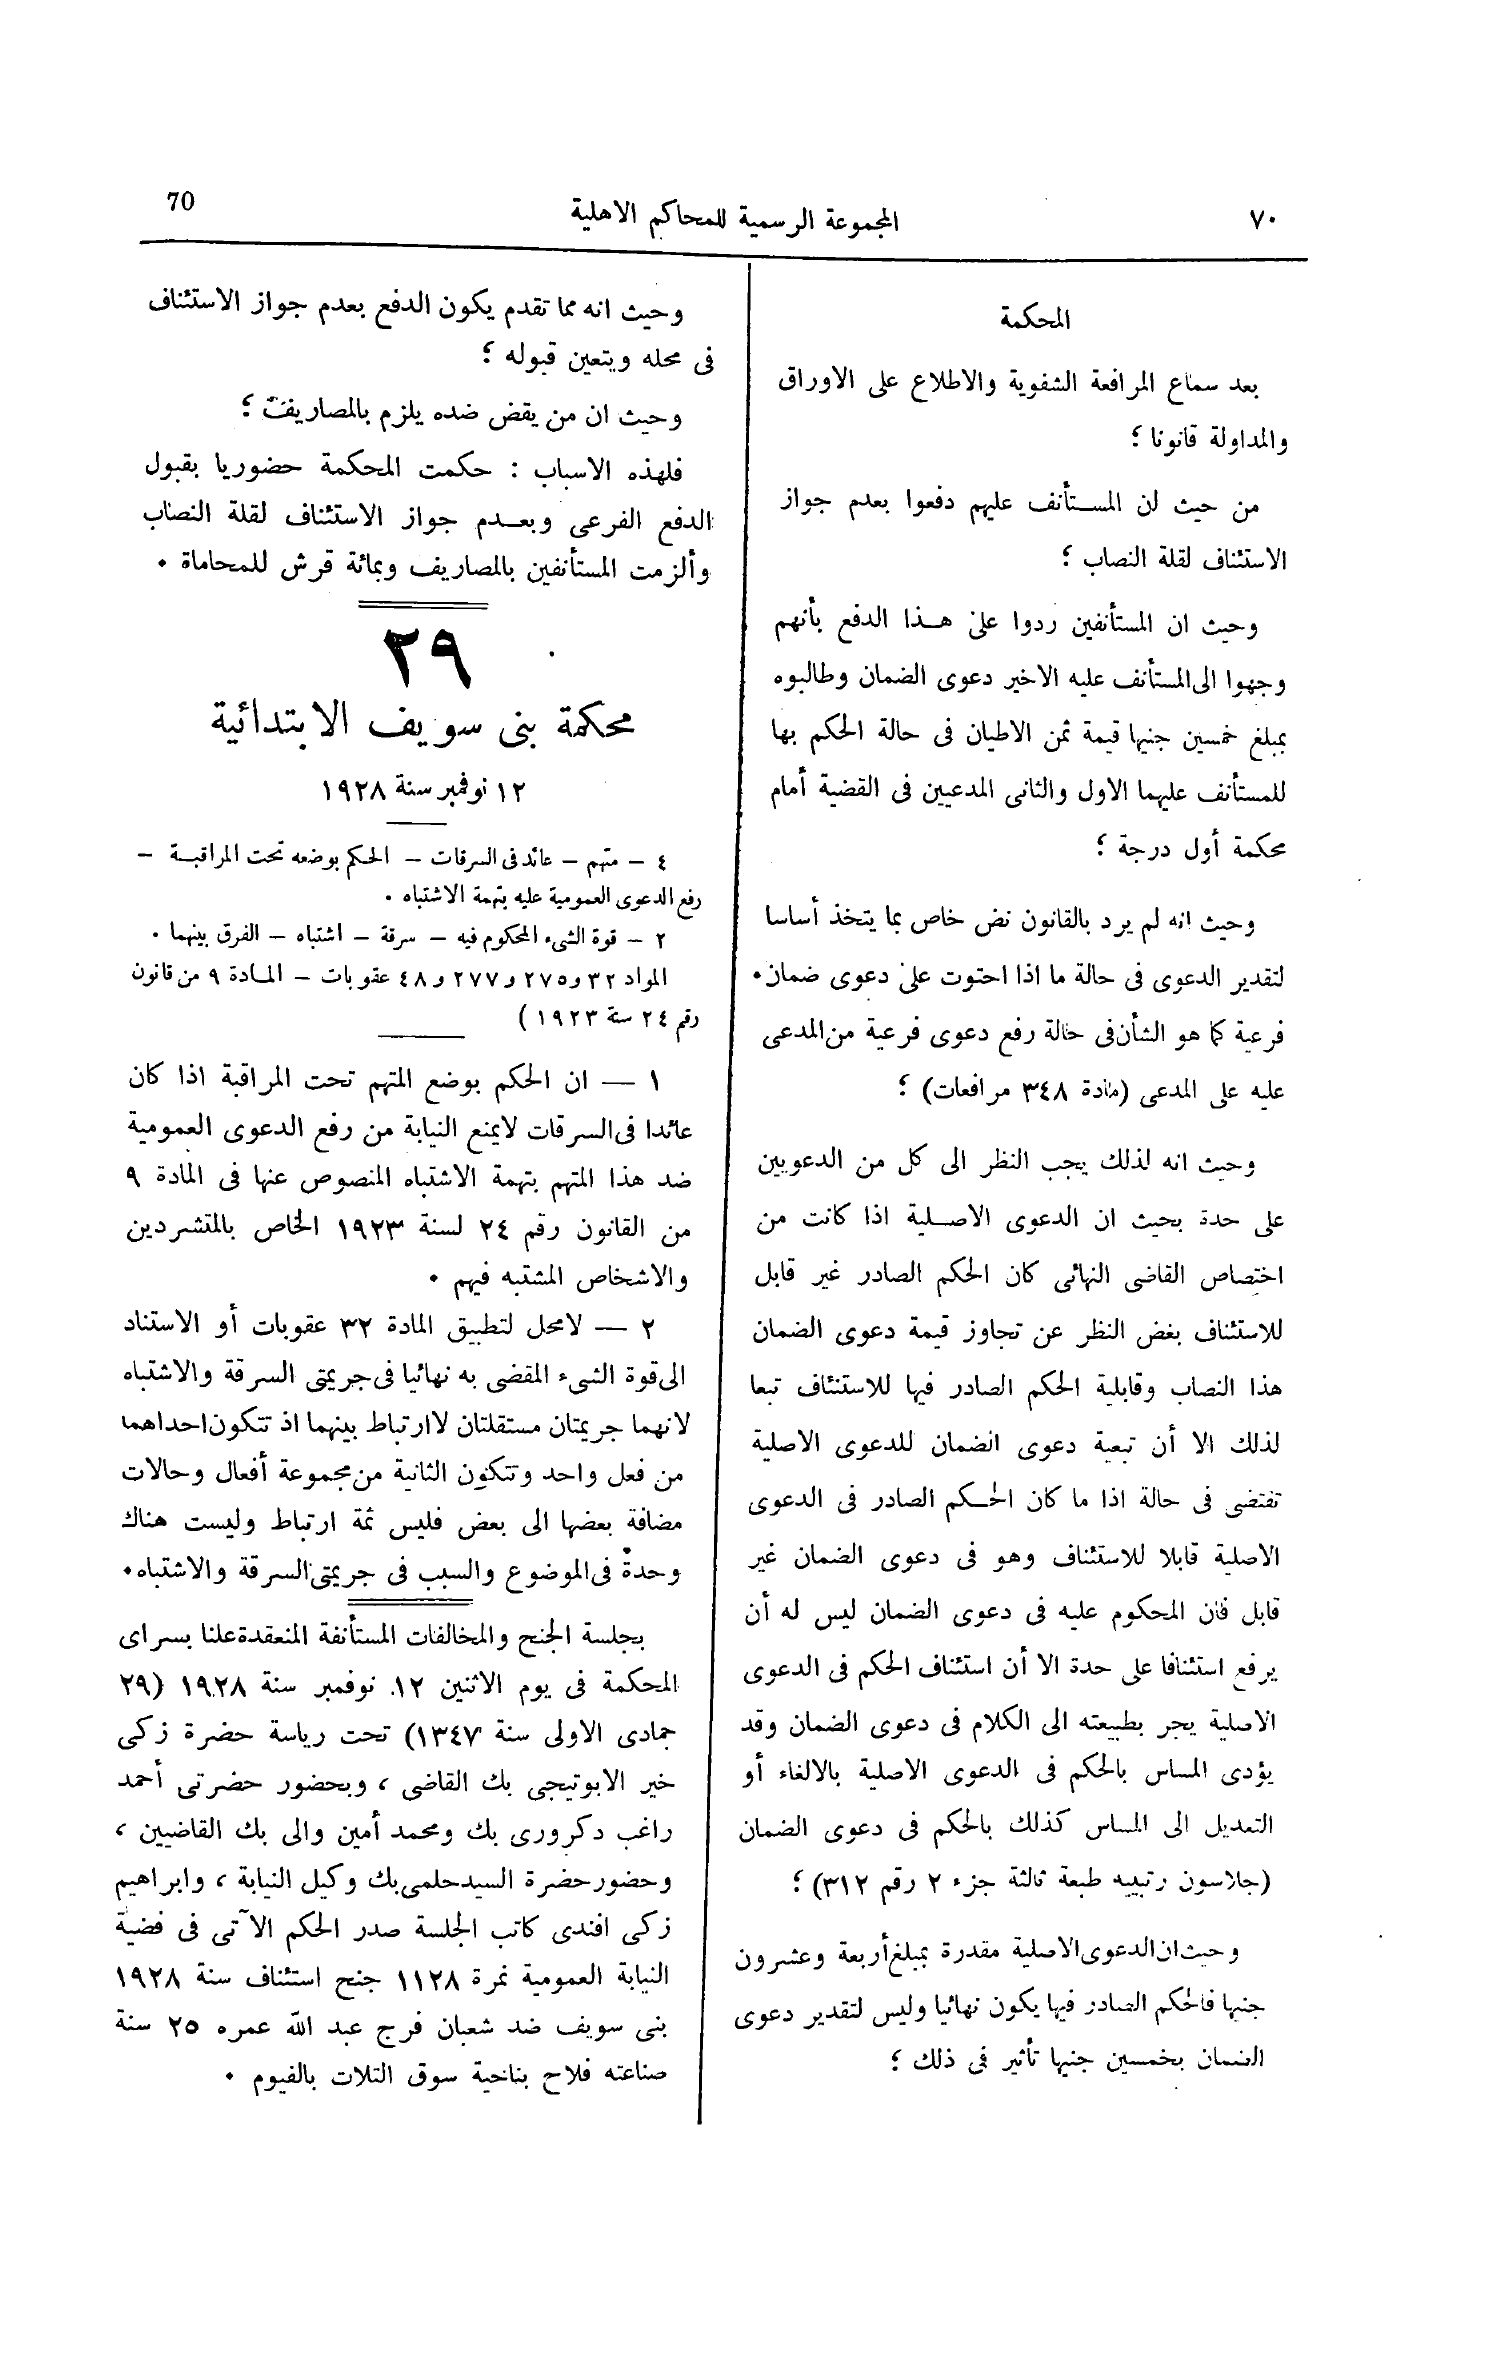 ٧٠
المجموعة الرسمية للمحاكم الاهلية
70
المحكمة
بعد سماع المرافعة الشفوية والاطلاع على الاوراق
والمداولة قانونا ؛
من حيث لن المستأنف عليهم دفعوا بعدم جواز
الاستئناف لقلة النصاب ؛
وحيث ان المستأنفين ردوا على هذا الدفع بأنهم
وجهوا الى المستأنف عليه الاخير دعوى الضمان وطالبوه
بمبلغ خمسين جنيها قيمة ثمن الاطيان فى حالة الحكم بها
للمستأنف عليهما الاول والثانى المدعيين فى القضية أمام
محكمة أول درجة ؛
وحيث انه لم يرد بالقانون نص خاص بما يتخذ أساسا
لتقدير الدعوى فى حالة ما اذا احتوت على دعوى ضمان٠
فرعية كما هو الشأن فى حالة رفع دعوى فرعية من المدعى
عليه على المدعى (مادة ٣٤٨ مرافعات) ؛
وحيث انه لذلك يجب النظر الى كل من الدعويين
على حدة بحيث ان الدعوى الاصلية اذا كانت من
اختصاص القاضى النهائى كان الحكم الصادر غير قابل
للاستئناف بغض النظر عن تجاوز قيمة دعوى الضمان
هذا النصاب وقابلية الحكم الصادر فيها للاستئناف تبعا
لذلك الا أن تبعية دعوى الضمان للدعوى الاصلية
تقتضى فى حالة اذا ما كان الحكم الصادر فى الدعوى
الاصلية قابلا للاستئناف وهو فى دعوى الضمان غير
قابل فان المحكوم عليه فى دعوى الضمان ليس له أن
يرفع استئنافا على حدة الا أن استئناف الحكم فى الدعوى
الاصلية يجر بطبيعته الى الكلام فى دعوى الضمان وقد
يؤدى المساس بالحكم فى الدعوى الاصلية بالالغاء أو
التعديل الى المساس كذلك بالحكم فى دعوى الضمان
(جلاسون رتيبيه طبعة ثالثة جزء ٢ رقم ٣١٢) ؛
وحيث ان الدعوى الاصلية مقدرة بمبلغ أربعة وعشرون
جنيها فالحكم الصادر فيها يكون نهائيا وليس لتقدير دعوى
الضمان بخمسين جنيها تأثير فى ذلك ؛
وحيث انه مما تقدم يكون الدفع بعدم جواز الاستئناف
فى محله ويتعين قبوله ؛
وحيث ان من يقض ضده يلزم بالمصاريف ؛
فلهذه الاسباب : حكمت المحكمة حضوريا بقبول
الدفع الفرعى وبعدم جواز الاستئناف لقلة النصاب
وألزمت المستأنفين بالمصاريف وبمائة قرش للمحاماة ٠
٢٩
محكمة بنى سويف الابتدائية
١٢ نوفمبر سنة ١٩٢٨
٤ – متهم – عائد فى السرقات – الحكم بوضعه تحت المراقبة –
رفع الدعوى العمومية عليه بتهمة الاشتباه ٠
٢ – قوة الشىء المحكوم فيه – سرقة – اشتباه – الفرق بينهما ٠
المواد ٣٢ و٢٧٥ و ٢٧٧ و ٤٨ عقوبات – المادة ٩ من قانون
رقم ٢٤ سنة ١٩٢٣ )
١ — ان الحكم بوضع المتهم تحت المراقبة اذا كان
عائدا فى السرقات لايمنع النيابة من رفع الدعوى العمومية
ضد هذا المتهم بتهمة الاشتباه المنصوص عنها فى المادة ٩
من القانون رقم ٢٤ لسنة ١٩٢٣ الخاص بالمتشردين
والاشخاص المشتبه فيهم ٠
٢ — لامحل لتطبيق المادة ٣٢ عقوبات أو الاستناد
الى قوة الشىء المقضى به نهائيا فى جريمتى السرقة والاشتباه
لانهما جريمتان مستقلتان لا ارتباط بينهما اذ تتكون احداهما
من فعل واحد وتتكون الثانية من مجموعة أفعال وحالات
مضافة بعضها الى بعض فليس ثمة ارتباط وليست هناك
وحدة فى الموضوع والسبب فى جريمتى السرقة والاشتباه٠
بجلسة الجنح والمخالفات المستأنفة المنعقدة علنا بسراى
المحكمة فى يوم الاثنين ١٢ نوفمبر سنة ١٩٢٨ (٢٩
جمادى الاولى سنة ١٣٤٧) تحت رياسة حضرة زكى
خير الابوتيجى بك القاضى ، وبحضور حضرتى أحمد
راغب دكرورى بك ومحمد أمين والى بك القاضيين ،
وحضور حضرة السيد حلمى بك وكيل النيابة ، وابراهيم
زكى افندى كاتب الجلسة صدر الحكم الآتى فى قضية
النيابة العمومية نمرة ١١٢٨ جنح استئناف سنة ١٩٢٨
بنى سويف ضد شعبان فرج عبد الله عمره ٢٥ سنة
صناعته فلاح بناحية سوق التلات بالفيوم ٠